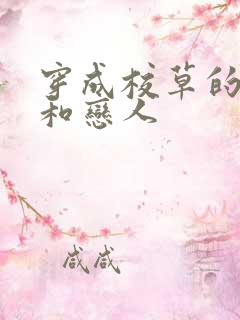 穿成校草的
和戀人
咸咸